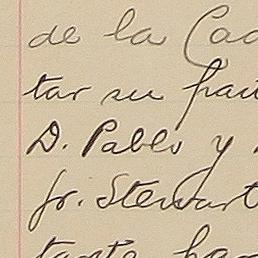 de la Cad
tar su
D. Pablo y
Jr. Stewart
tante